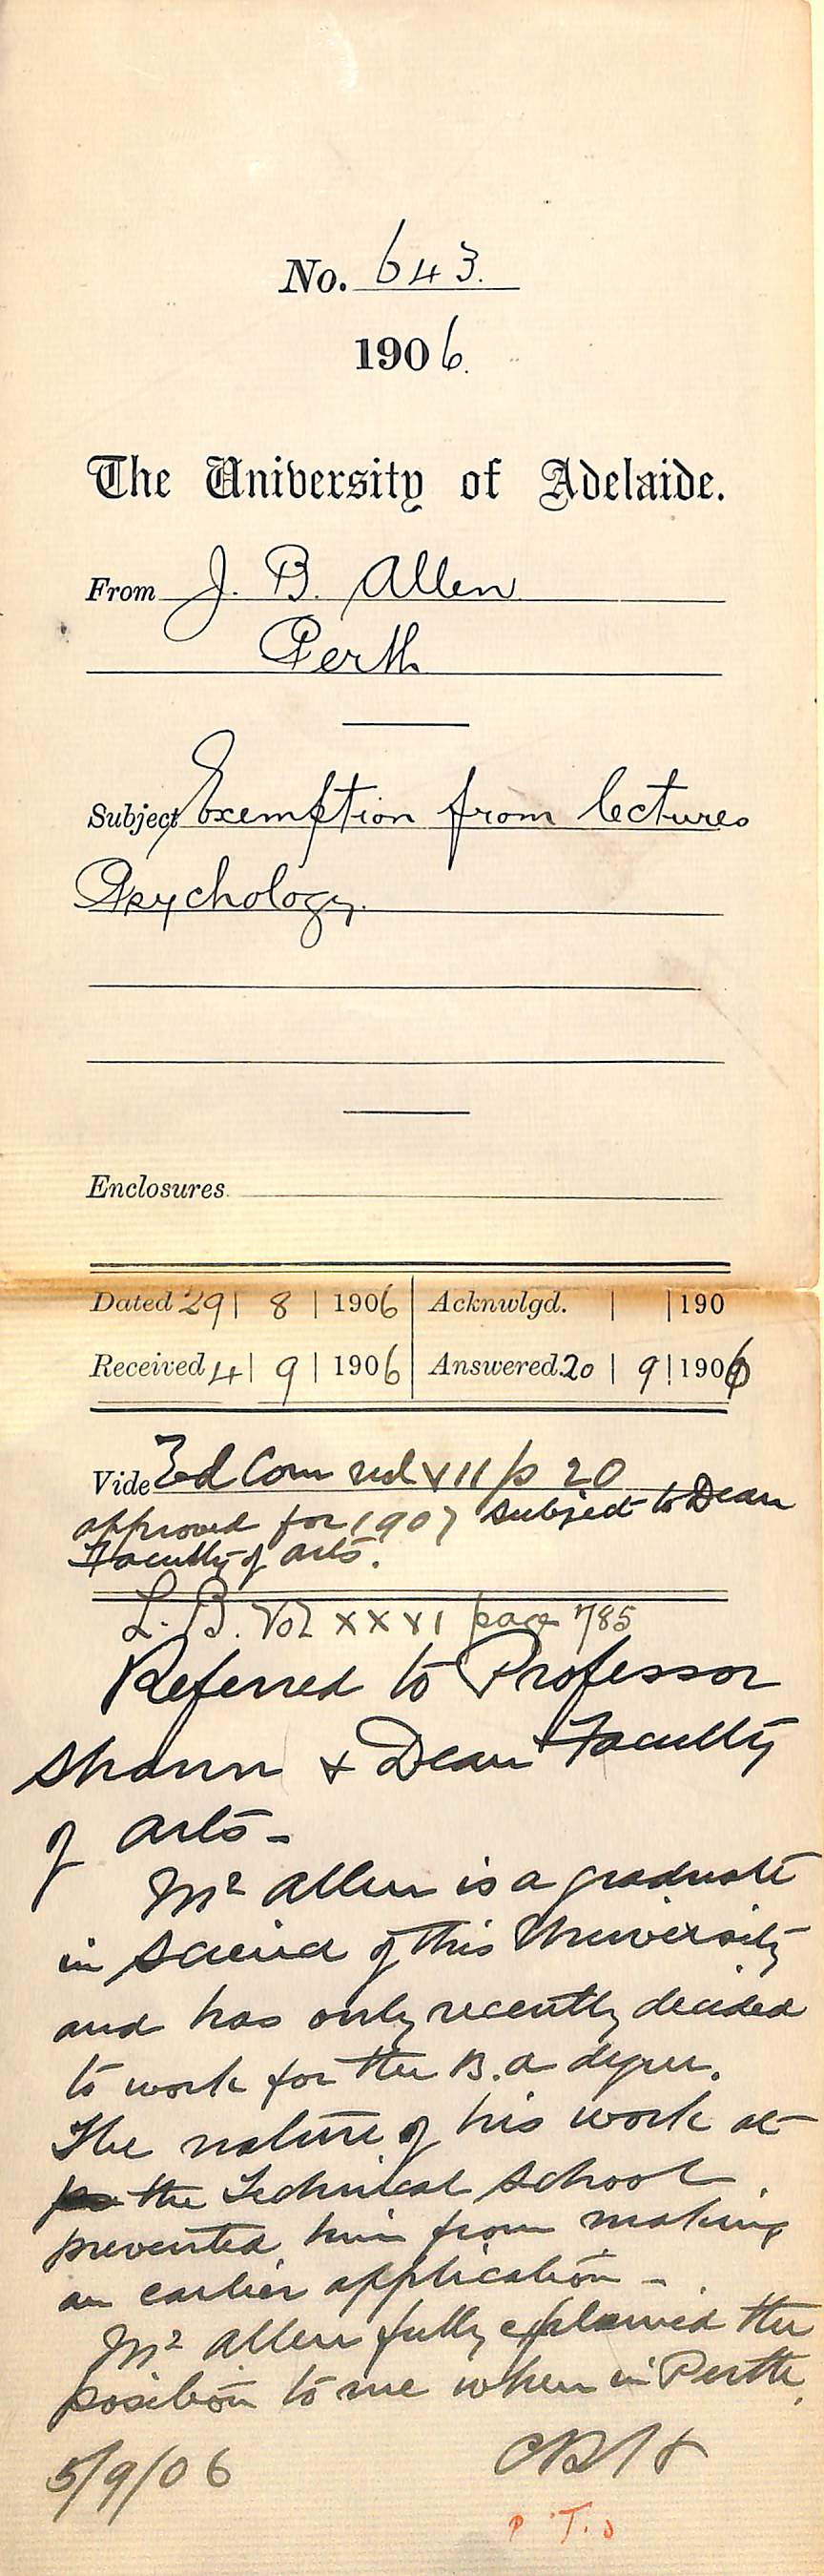 No. 643.
1906.
The University of Adelaide.
From J. B. Allen
Perth
Subject Exemption from lectures
Psychology.
Enclosures
Dated 29 | 8 | 1906 | Acknwlgd. | | 190
Received 4 | 9 | 1906 | Answered 20 | 9 | 1906
Vide Ed Com vol VII p 20
approved for 1907 subject to Dean
Faculty of Arts.
L. B. Vol XXVI page 785
Referred to Professor
& Dean Faculty
of Arts -
Mr Allen is a graduate
in Science of this University
and has only recently decided
to work for the B.A degree.
The nature of his work at
the Technical School
prevented him from making
an earlier application -
Mr Allen fully explained the
position to me when in Perth.
5/9/06
P.T.O